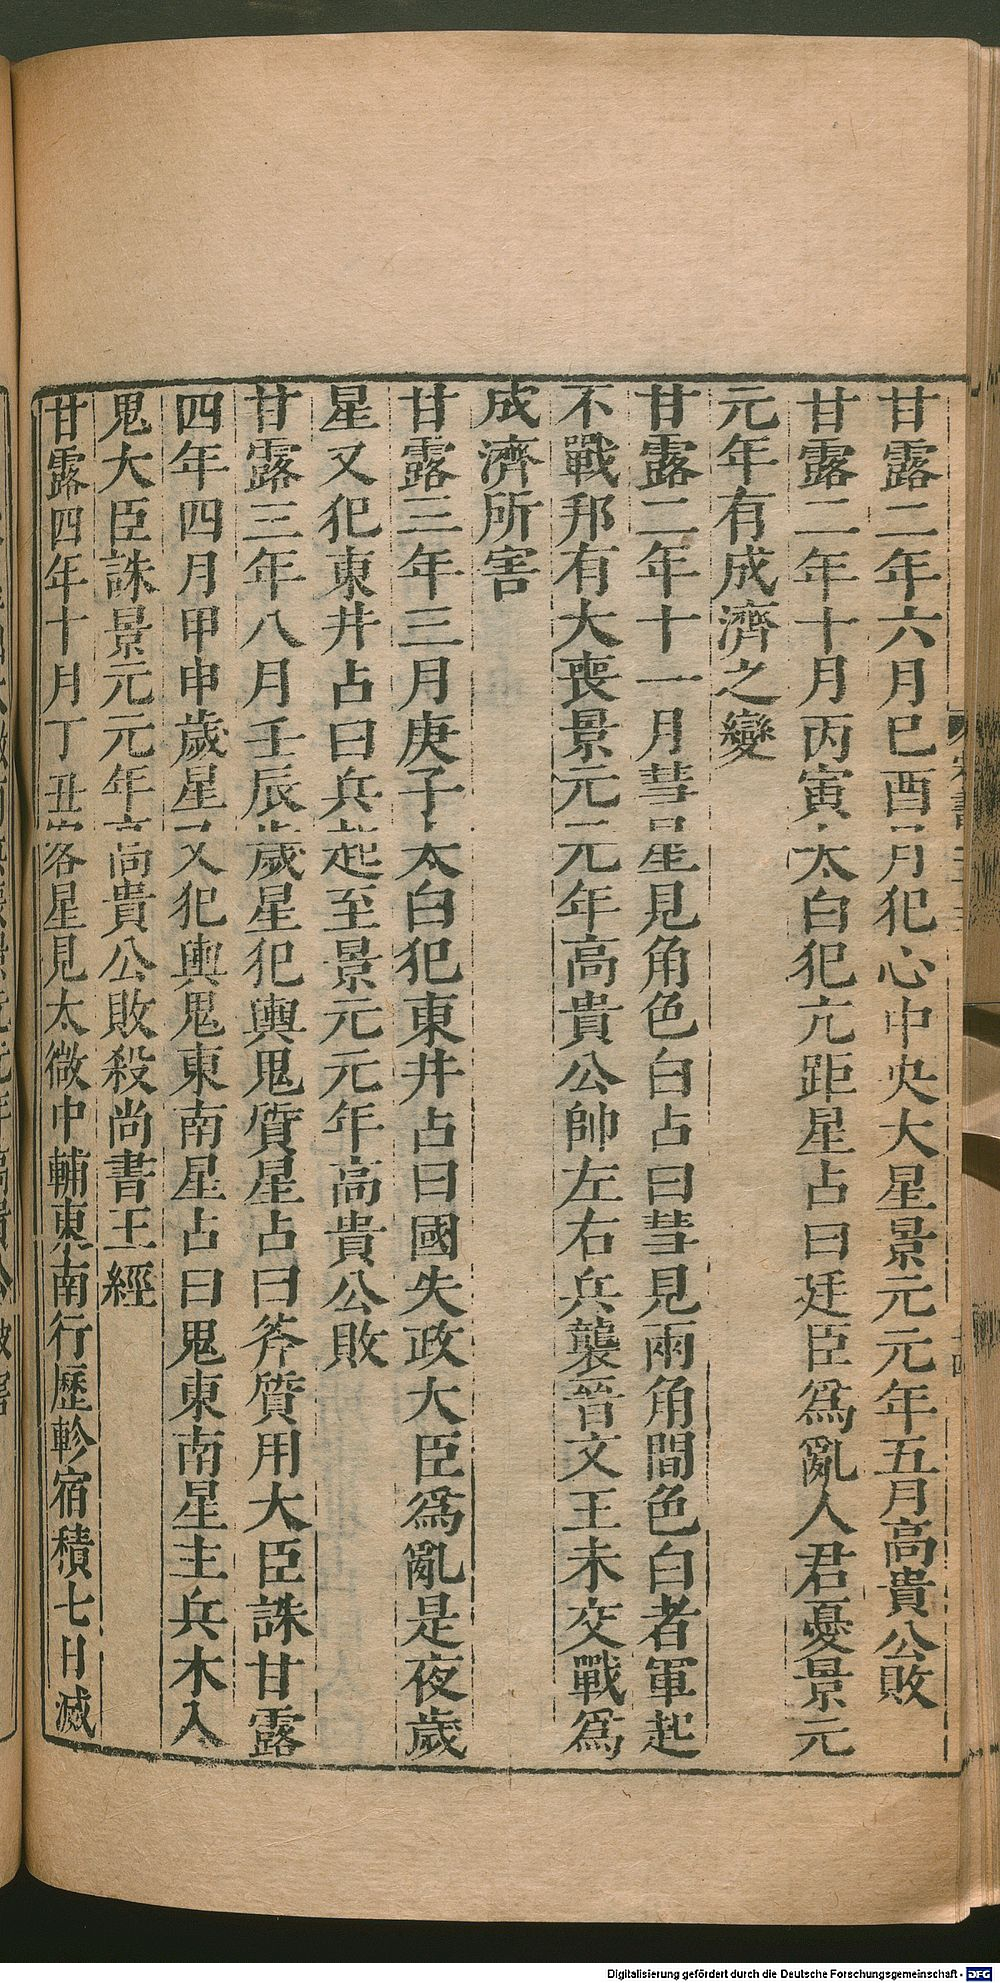 甘露二年六月巳酉月犯心中央大星景元元年五月高貴公敗
甘露二年十月丙寅太白犯亢距星占曰廷臣爲亂人君憂景元
元年有成濟之變
甘露二年十一月彗星見角色白占曰彗見兩角間色白者軍起
不戰邦有大喪景元元年高貴公帥左右兵襲晉文王未交戰爲
成濟所害
甘露三年三月庚子太白犯東井占曰國失政大臣爲亂是夜歲
星又犯東井占曰兵起至景元元年高貴公敗
甘露三年八月壬辰歲星犯輿鬼質星占曰斧質用大臣誅甘露
四年四月甲申歲星又犯輿鬼東南星占曰鬼東南星主兵木入
鬼大臣誅景元元年高貴公敗殺尚書王經
甘露四年十月丁丑客星見太微中轉東南行歷軫宿積七日滅
Digitalisierung gefördert durch die Deutsche Forschungsgemeinschaft - DFG